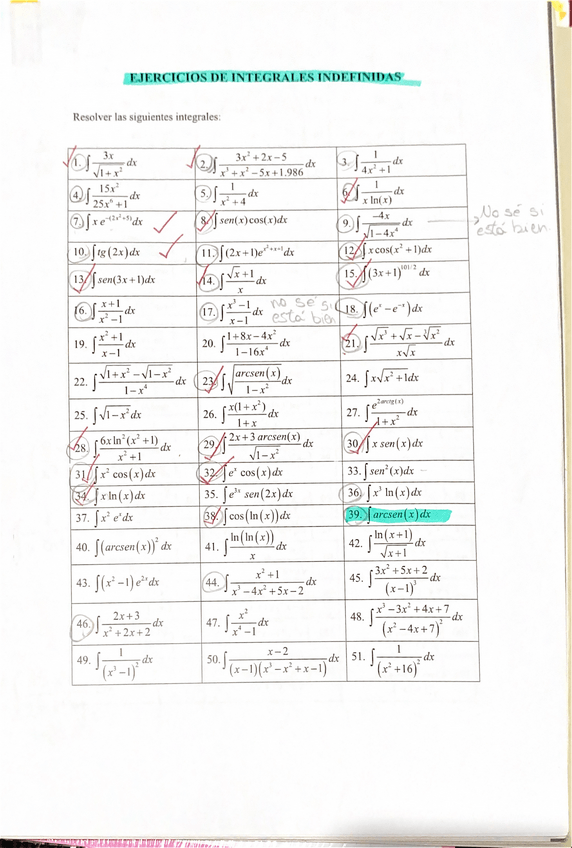 EJERCICIOS DE INTEGRALES INDEFINIDAS
Resolver las siguientes integrales:
1. ∫ 3x/√(1+x²) dx
2. ∫ (3x²+2x−5)/(x³+x²−5x+1.986) dx
3. ∫ 1/(4x²+1) dx
4. ∫ 15x²/(25x⁶+1) dx
5. ∫ 1/(x²+4) dx
6. ∫ 1/(x ln(x)) dx
7. ∫ x e^(−(2x²+5)) dx
8. ∫ sen(x)cos(x) dx
9. ∫ −4x/√(1−4x⁴) dx
No sé si
está bien
10. ∫ tg(2x) dx
11. ∫ (2x+1)e^(x²+x+1) dx
12. ∫ x cos(x²+1) dx
13. ∫ sen(3x+1) dx
14. ∫ (√x+1)/x dx
15. ∫ (3x+1)^(101/2) dx
16. ∫ (x+1)/(x²−1) dx
17. ∫ (x³−1)/(x−1) dx
no sé si
está bien
18. ∫ (eˣ−e⁻ˣ) dx
19. ∫ (x²+1)/(x−1) dx
20. ∫ (1+8x−4x²)/(1−16x⁴) dx
21. ∫ (√x³+√x−∛x²)/(x√x) dx
22. ∫ (√(1+x²)−√(1−x²))/(1−x⁴) dx
23. ∫ √(arcsen(x)/(1−x²)) dx
24. ∫ x√(x²+1) dx
25. ∫ √(1−x²) dx
26. ∫ x(1+x²)/(1+x) dx
27. ∫ e^(2arctg(x))/(1+x²) dx
28. ∫ 6x ln²(x²+1)/(x²+1) dx
29. ∫ (2x+3 arcsen(x))/√(1−x²) dx
30. ∫ x sen(x) dx
31. ∫ x² cos(x) dx
32. ∫ eˣ cos(x) dx
33. ∫ sen²(x) dx
34. ∫ x ln(x) dx
35. ∫ e³ˣ sen(2x) dx
36. ∫ x³ ln(x) dx
37. ∫ x² eˣ dx
38. ∫ cos(ln(x)) dx
39. ∫ arcsen(x) dx
40. ∫ (arcsen(x))² dx
41. ∫ ln(ln(x))/x dx
42. ∫ ln(x+1)/√(x+1) dx
43. ∫ (x²−1) e²ˣ dx
44. ∫ (x²+1)/(x³−4x²+5x−2) dx
45. ∫ (3x²+5x+2)/(x−1)³ dx
46. ∫ (2x+3)/(x²+2x+2) dx
47. ∫ x²/(x⁴−1) dx
48. ∫ (x³−3x²+4x+7)/(x²−4x+7)² dx
49. ∫ 1/(x³−1)² dx
50. ∫ (x−2)/((x−1)(x³−x²+x−1)) dx
51. ∫ 1/(x²+16)² dx